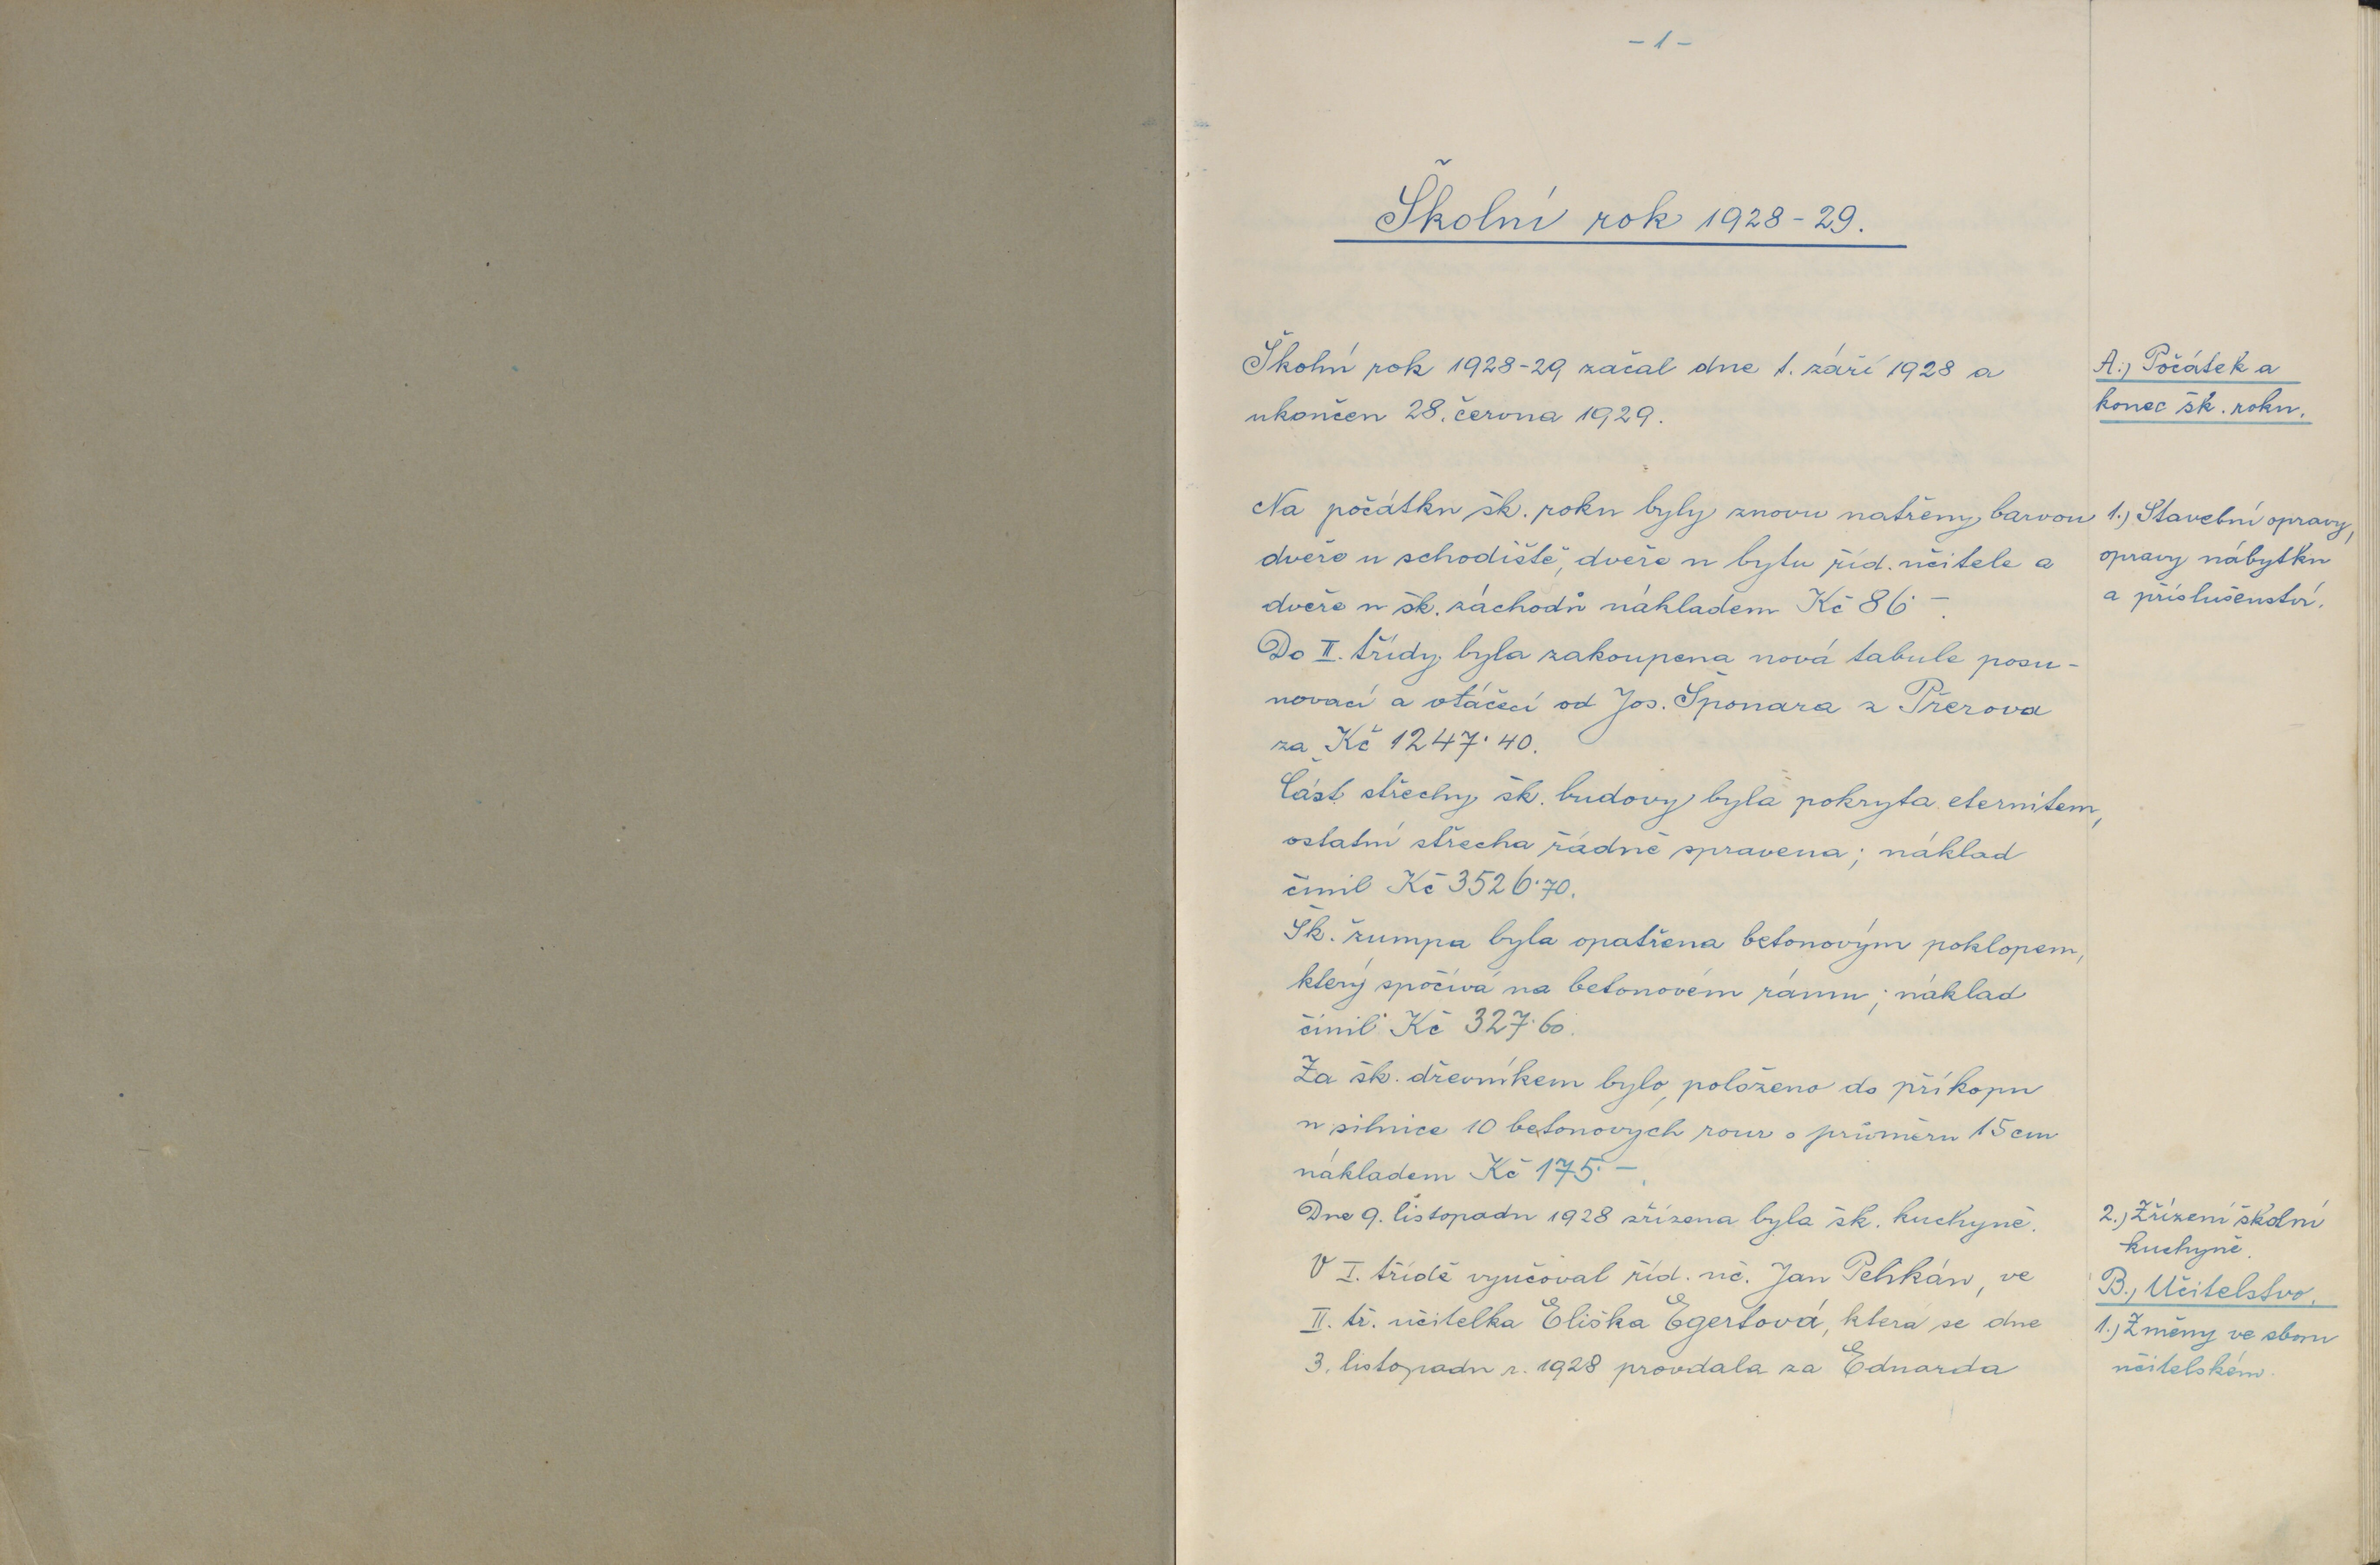 - 1 -
Školní rok 1928-29.
Školní rok 1928-29 začal dne 1. září 1928 a
ukončen 28. června 1929.
A.) Počátek a
konec šk. roku.
Na počátku šk. roku byly znovu natřeny barvou
dveře u schodiště, dveře u bytu říd. učitele a
dveře u šk. záchodů nákladem Kč 86·-.
1.) Stavební opravy,
opravy nábytku
a příslušenství.
Do II. třídy byla zakoupena nová tabule posu-
novací a otáčecí od Jos. Šponara z Přerova
za Kč 1247·40.
Část střechy šk. budovy byla pokryta eternitem,
ostatní střecha řádně spravena; náklad
činil Kč 3526·70.
Šk. žumpa byla opatřena betonovým poklopem,
který spočívá na betonovém rámu; náklad
činil Kč 327·60.
Za šk. dřevníkem bylo položeno do příkopu
u silnice 10 betonových rour o průměru 15 cm
nákladem Kč 175·-.
Dne 9. listopadu 1928 zřízena byla šk. kuchyně.
2.) Zřízení školní
kuchyně.
V I. třídě vyučoval říd. uč. Jan Pelikán, ve
II. tř. učitelka Eliška Egertová, která se dne
3. listopadu r. 1928 provdala za Eduarda
B.) Učitelstvo.
1.) Změny ve sboru
učitelském.